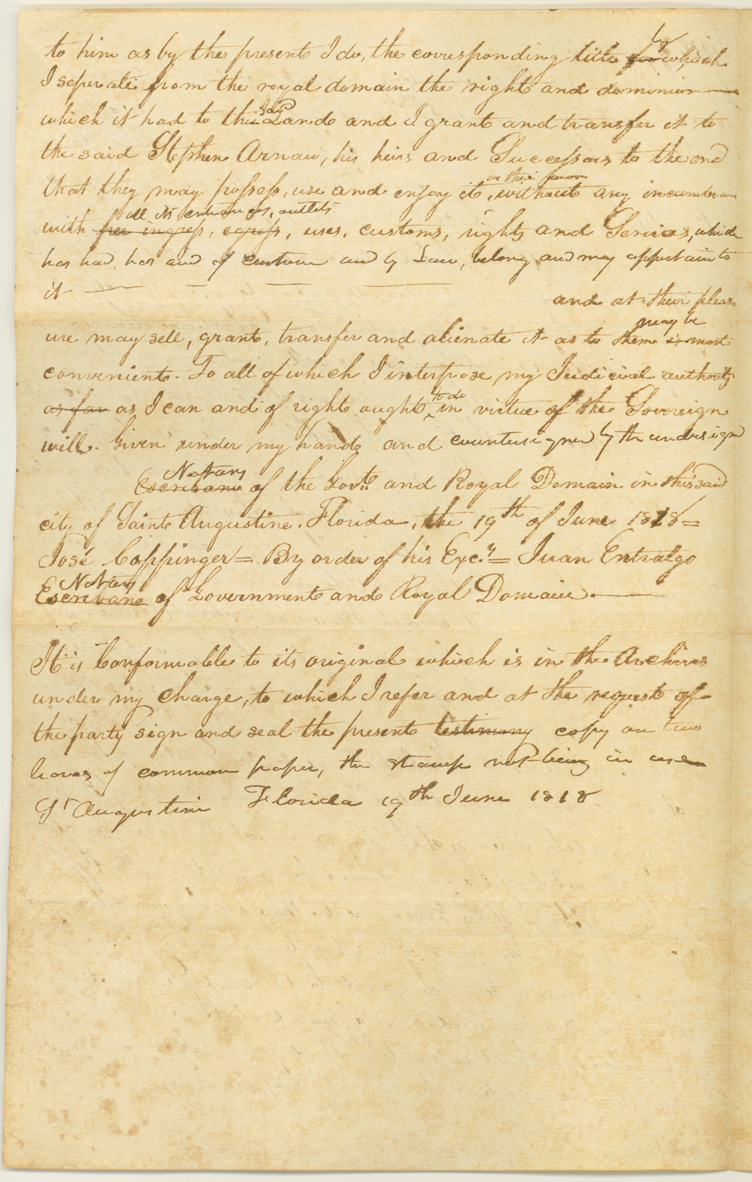 by
to him as by the present I do, the corresponding title for which
I seperate from the royal domain the right and dominion
said
which it had to this Land and I grant and transfer it to
the said Stephen Arnau, his heirs and Successors to the end
in their favor
that they may possess, use and enjoy it, without any incumbran
all its entrances, outlets
with free ingress, egress, uses, customs, rights and Services, which
has had, has and of custom and by Law, belong and may appertain to
it and at their pleas
may be
ure may sell, grant, transfer and alienate it as to them is most
convenient. To all of which I interpose my Judicial authority
to do
as far as I can and of right ought in virtue of the Sovereign
will. Given under my hand and countersigned by the undersign
Notary
Escribano of the Govt. and Royal Domain in this said
city of Saint Augustine, Florida, the 19th of June 1818=
José Coppinger= By order of his Excy.= Juan Entralgo
Notary
Escribano of Government and Royal Domain.
It is Conformable to its original which is in the Archives
under my charge, to which I refer and at the request of
the party sign and seal the present testimony copy on two
leaves of common paper, the stamp not being in use
St Augustine Florida 19th June 1818